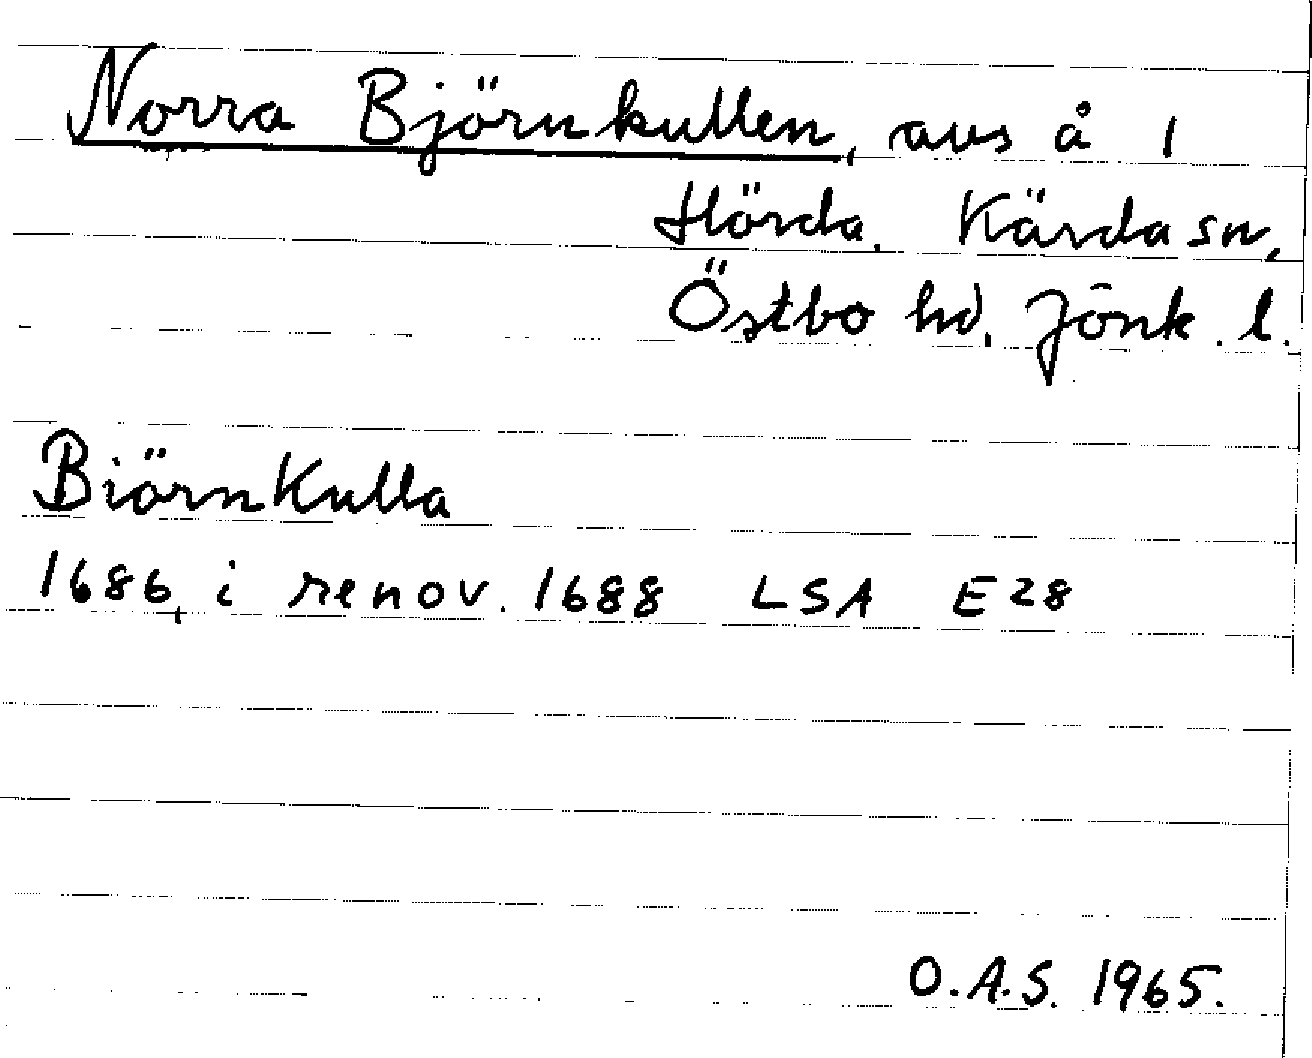 Norra Björnkullen, avs å 1
Hörda. Kärda sn,
Östbo hd, Jönk. l.
Biörnkulla
1686, i renov. 1688 LSA E28
O.A.S. 1965.